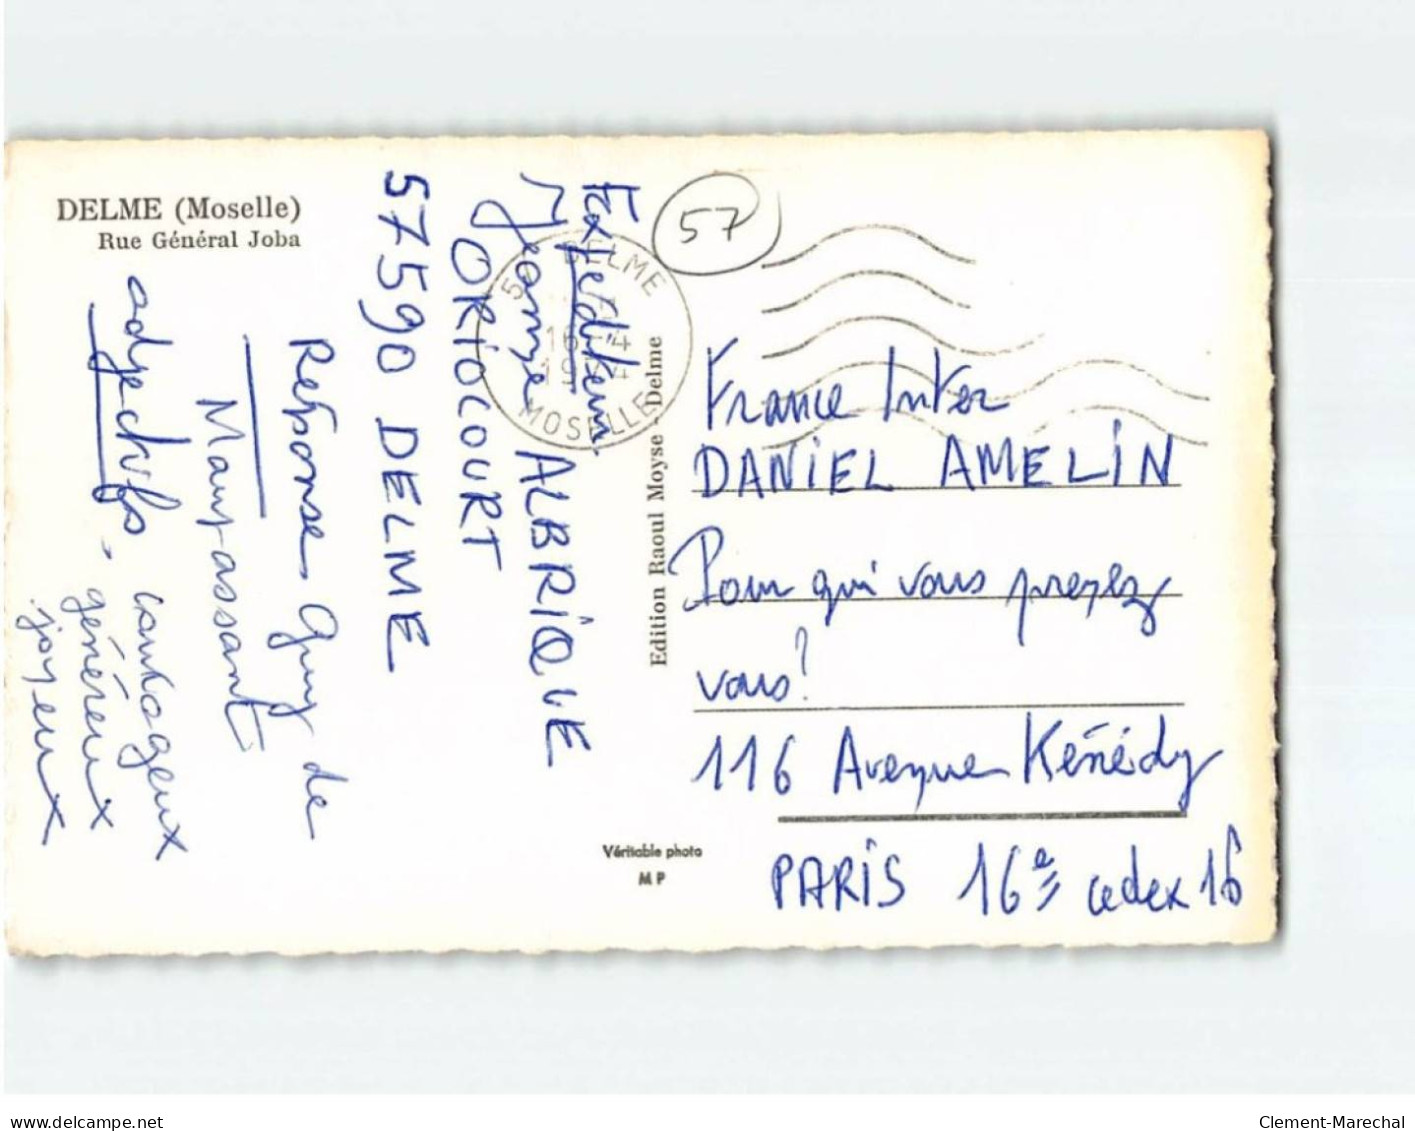 DELME (Moselle)
Rue Général Joba
Expediteur
Jeanne ALBRIQUE
ORIOCOURT
57590 DELME
Réponse Guy de
Maupassant
adjectifs - 
généreux
joyeux
57
DELME
16-4
MOSELLE
Edition Raoul Moyse - Delme
France Inter
DANIEL AMELIN
Pour qui vous prenez
vous?
116 Avenue Kénédy
PARIS 16e cedex 16
Véritable photo
MP
www.delcampe.net
Clement-Marechal